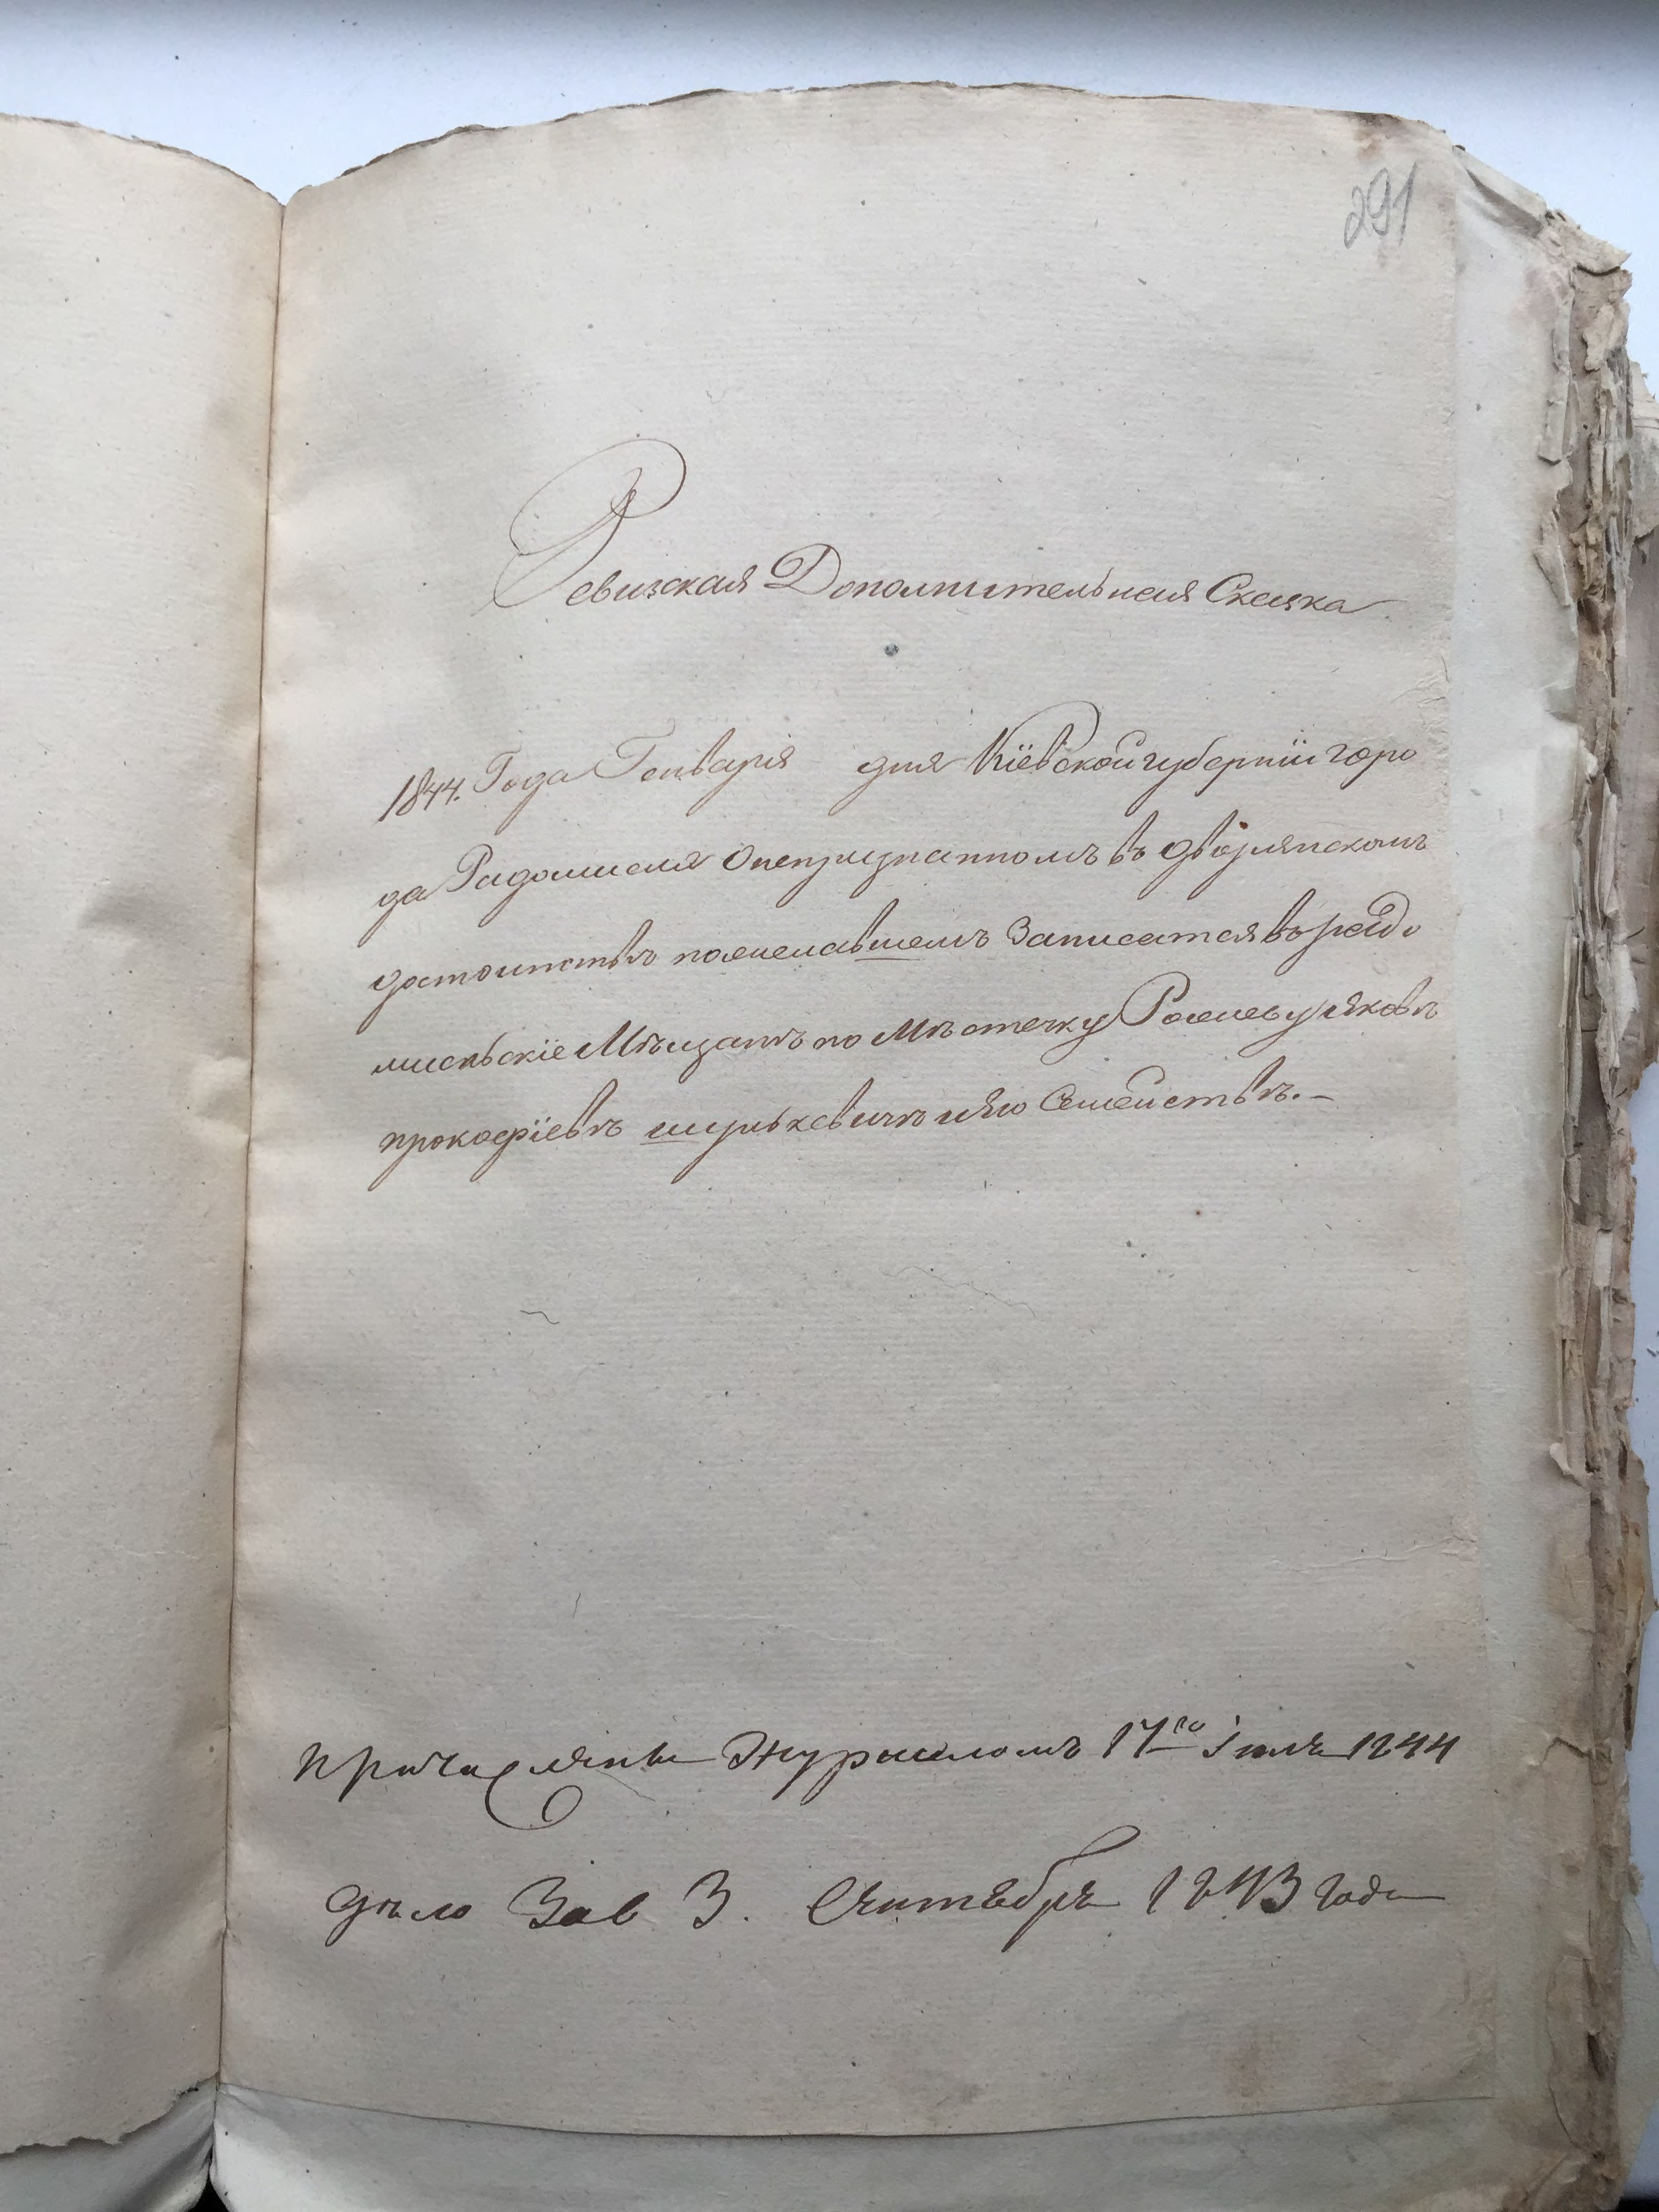 291
Ревизская Дополнительная Сказка
1844. Года Генваря дня Кіевской губерніи горо
да Радомисля Онепризнанномъ въ дворянскомъ
достоинствѣ пожелавшемъ Записатся въ радо
мисльскіе Мѣщанѣ по Мѣстечку Рожеву яковѣ
прокофіевѣ шульхевичѣ иѣго Семействѣ.-
причислены Журналомъ 17го Іюля 1844
дѣло 3. Сентебря 1843 года